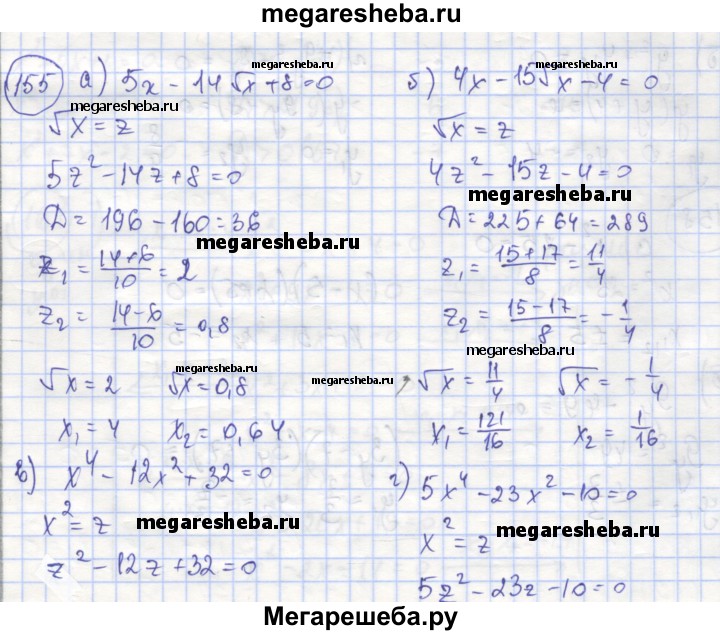 megaresheba.ru
155 а) 5x - 14√x + 8 = 0
megaresheba.ru
√x = z
5z² - 14z + 8 = 0
D = 196 - 160 = 36
megaresheba.ru
z₁ = (14+6)/10 = 2
z₂ = (14-6)/10 = 0,8
megaresheba.ru
√x = 2 √x = 0,8
x₁ = 4 x₂ = 0,64.
б) 4x - 15√x - 4 = 0
megaresheba.ru
√x = z
4z² - 15z - 4 = 0
megaresheba.ru
D = 225 + 64 = 289
z₁ = (15+17)/8 = 11/4
z₂ = (15-17)/8 = -1/4
megaresheba.ru
megaresheba.ru
√x = 11/4 √x = -1/4
x₁ = 121/16 x₂ = 1/16
в) x⁴ - 12x² + 32 = 0
x² = z
megaresheba.ru
z² - 12z + 32 = 0
г) 5x⁴ - 23x² - 10 = 0
megaresheba.ru
x² = z
5z² - 23z - 10 = 0
Мегарешеба.ру